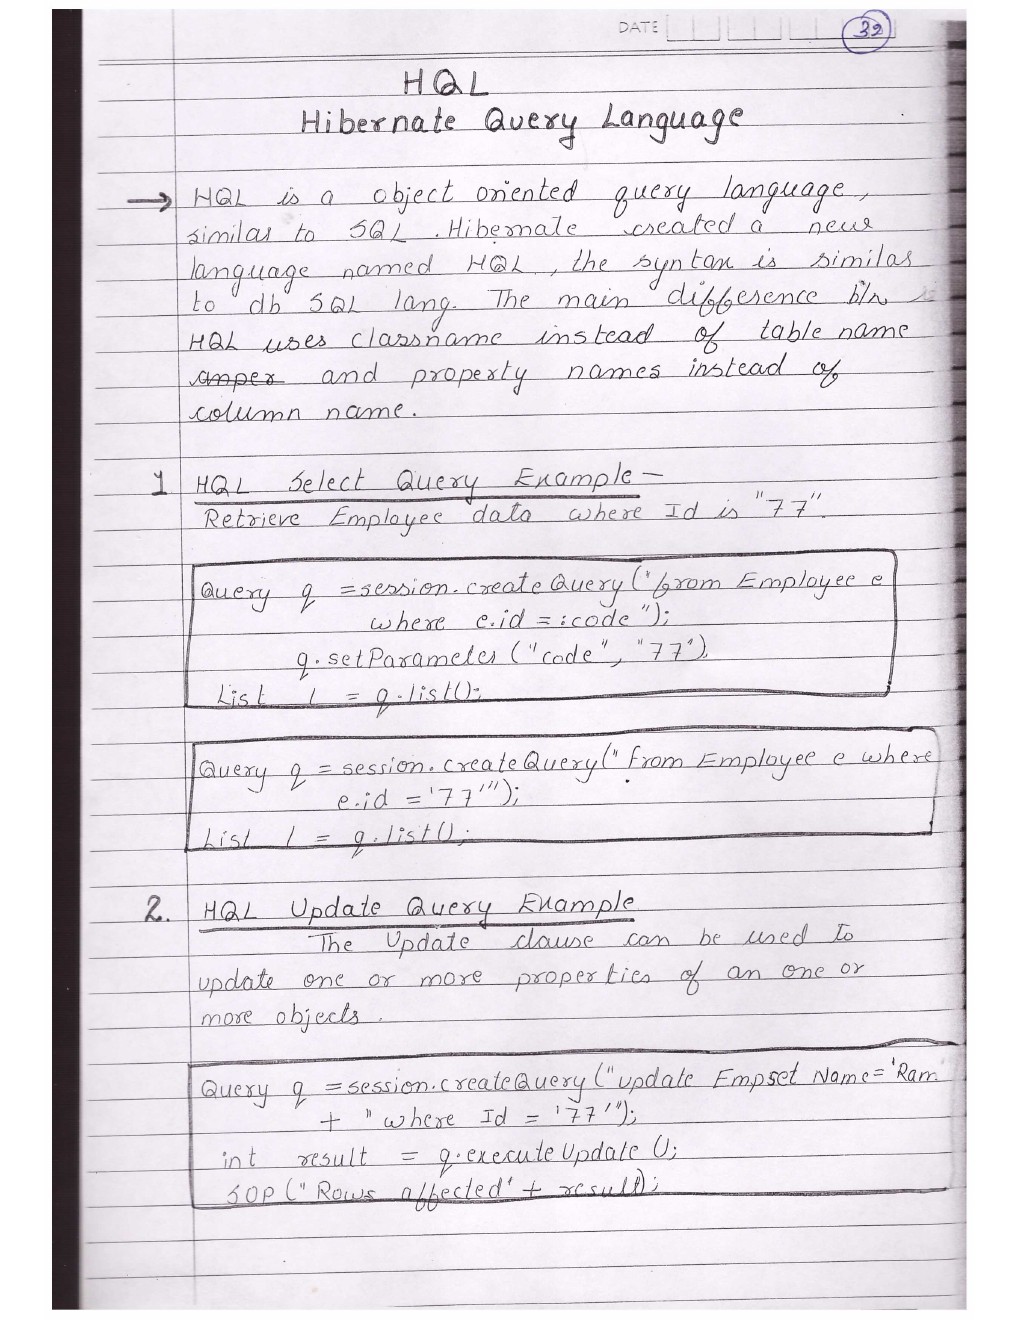 DATE 32
HQL
Hibernate Query Language
→ HQL is a object oriented query language,
similar to SQL. Hibernate created a new
language named HQL, the syntax is similar
to db SQL lang. The main difference b/w is
HQL uses classname instead of table name
and property names instead of
column name.
1 HQL Select Query Example —
Retrieve Employee data where Id is "77".
Query q = session.createQuery("from Employee e
where e.id = :code");
q.setParameter ("code", "77")
List l = q.list();
Query q = session.createQuery("from Employee e where
e.id = '77'");
List l = q.list();
2. HQL Update Query Example
The Update clause can be used to
update one or more properties of an one or
more objects.
Query q = session.createQuery("update Emp set Name='Ram'
+ "where Id = '77'");
int result = q.executeUpdate();
SOP("Rows affected" + result);